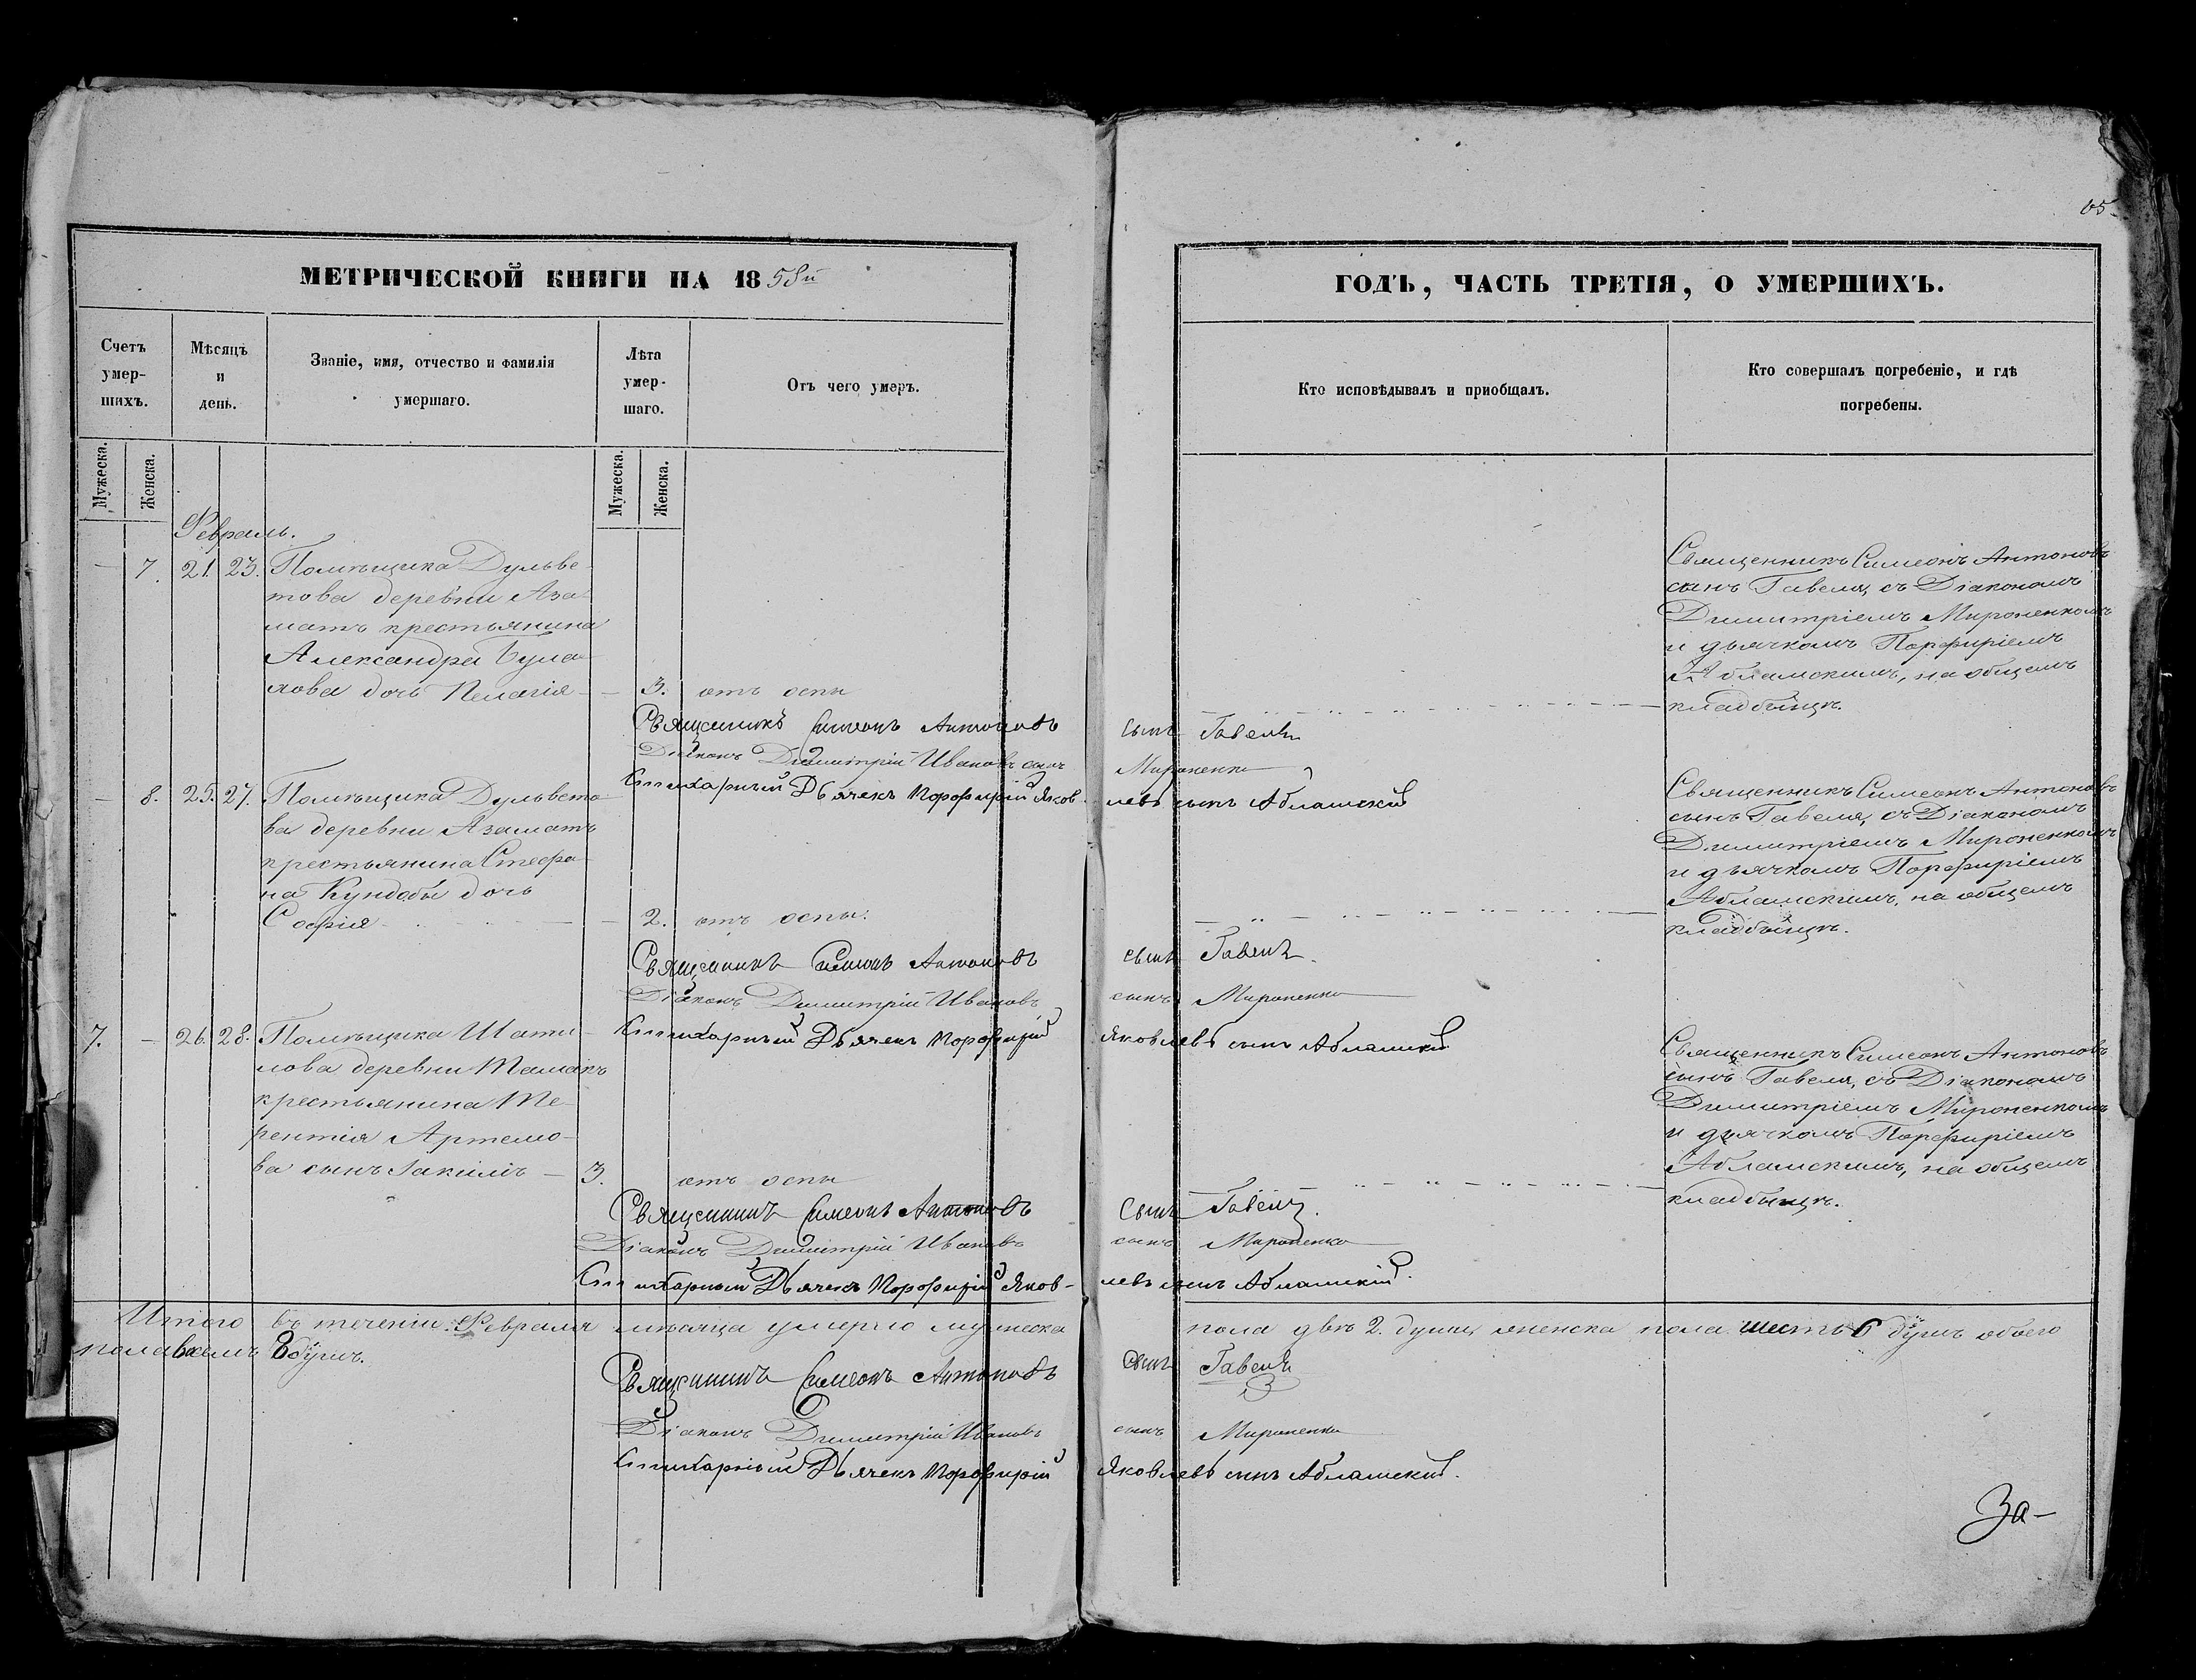 65
МЕТРИЧЕСКОЙ КНИГИ НА 1858й
ГОДЪ, ЧАСТЬ ТРЕТІЯ, О УМЕРШИХЪ.
Счетъ
умер-
шихъ.
Мѣсяцъ
и
день.
Званіе, имя, отчество и фамилія
умершаго.
Лѣта
умер-
шаго.
Отъ чего умеръ.
Кто исповѣдывалъ и пріобщалъ.
Кто совершалъ погребеніе, и гдѣ
погребены.
Мужеска.
Женска.
Мужеска.
Женска.
Февраль.
— 7. 21. 23. Помѣщика Дульве-
това деревни Аза-
матъ крестьянина
Александра Була-
хова дочь Пелагія — 3. отъ оспы
Священникъ Симеонъ Антоновъ
сынъ Гавеля, съ Діакономъ
Димитріемъ Мироненкомъ
и дьячкомъ Порфиріемъ
Абламскимъ, на общемъ
кладбищѣ.
Священникъ Симеонъ Антоновъ сынъ Гавель
Діаконъ Димитрій Ивановъ сынъ Мироненко
Дьячекъ Порфирій Яков-левъ сынъ Абламскій
— 8. 25. 27. Помѣщика Дульвето-
ва деревни Азаматъ
крестьянина Стефа-
на Кундобы дочь
Софія — 2. отъ оспы.
Священникъ Симеонъ Антоновъ
сынъ Гавеля, съ Діакономъ
Димитріемъ Мироненкомъ
и дьячкомъ Порфиріемъ
Абламскимъ, на общемъ
кладбищѣ.
Священникъ Симеонъ Антоновъ сынъ Гавель
Діаконъ Димитрій Ивановъ сынъ Мироненко
Дьячекъ Порфирій Яковлевъ сынъ Абламскій
7. — 26. 28. Помѣщика Шати-
лова деревни Тамакъ
крестьянина Те-
рентія Артемо-
ва сынъ Іакимъ — 3. отъ оспы
Священникъ Симеонъ Антоновъ
сынъ Гавеля, съ Діакономъ
Димитріемъ Мироненкомъ
и дьячкомъ Порфиріемъ
Абламскимъ, на общемъ
кладбищѣ.
Священникъ Симеонъ Антоновъ сынъ Гавель.
Діаконъ Димитрій Ивановъ сынъ Мироненко
Дьячекъ Порфирій Яков-левъ сынъ Абламскій.
Итого въ теченіи Февраля мѣсяца умерло мужеска пола двѣ 2. души, женска пола шесть 6 душъ обоего
пола всемъ 8 душъ.
Священникъ Симеонъ Антоновъ сынъ Гавель
Діаконъ Димитрій Ивановъ сынъ Мироненко
Дьячекъ Порфирій Яковлевъ сынъ Абламскій.
За-